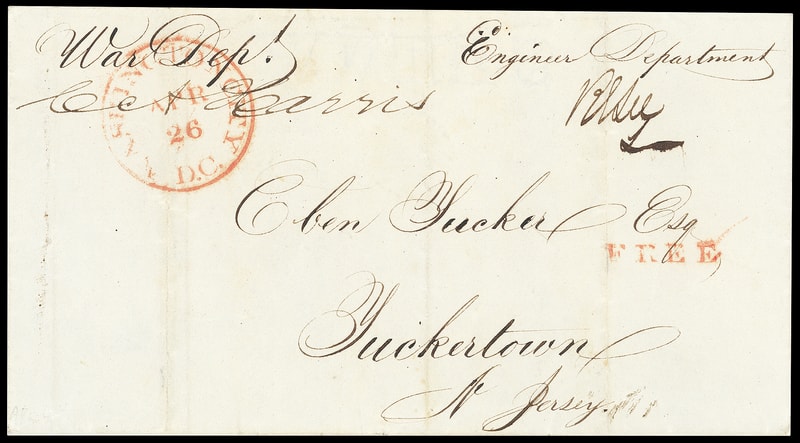 War Dept. Engineer Department
Harris
WASHINGTON CITY
APR
26
D.C.
Eben Tucker Esq
FREE
Tuckertown
N Jersey.